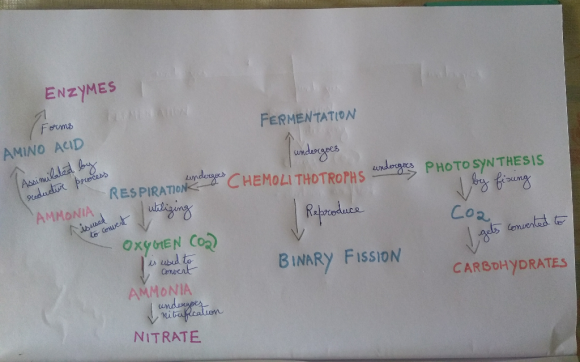 ENZYMES
Forms
AMINO ACID
Assumilated by
reductive process
AMMONIA
is used
to convert
RESPIRATION
undergoes
utilizing
OXYGEN (O2)
is used to
convert
AMMONIA
undergoes
nitrification
NITRATE
FERMENTATION
undergoes
CHEMOLITHOTROPHS
Reproduce
BINARY FISSION
undergoes
PHOTOSYNTHESIS
by fixing
CO2
gets converted to
CARBOHYDRATES